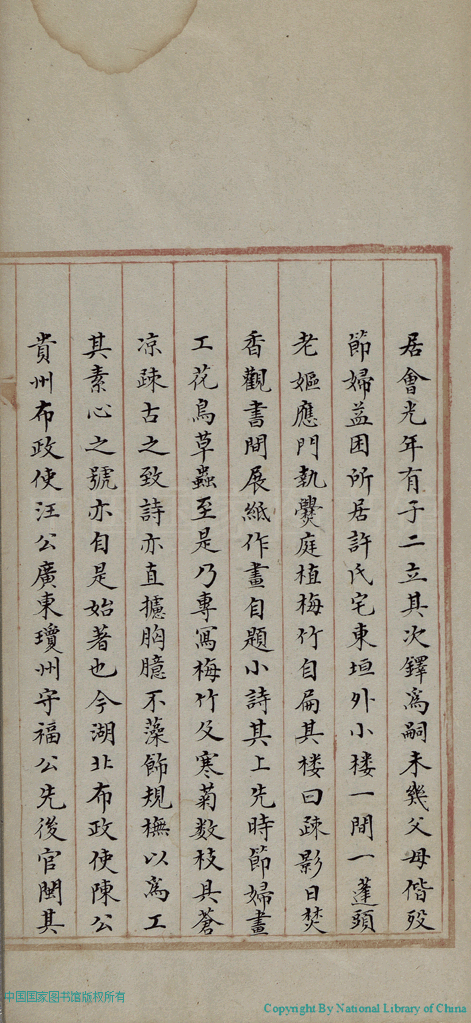 居會光年有子二立其次鐸爲嗣未幾父母偕歿
節婦益困所居許氏宅東垣外小楼一間一蓬頭
老嫗應門執爨庭植梅竹自扁其楼曰疎影日焚
香觀書間展紙作畫自題小詩其上先時節婦畫
工花鳥草蟲至是乃專寫梅竹及寒菊数枝具蒼
凉疎古之致詩亦直攄胸臆不藻飾規橅以爲工
其素心之號亦自是始著也今湖北布政使陳公
貴州布政使汪公廣東瓊州守福公先後官閩其
中国国家图书馆版权所有
Copyright By National Library of China